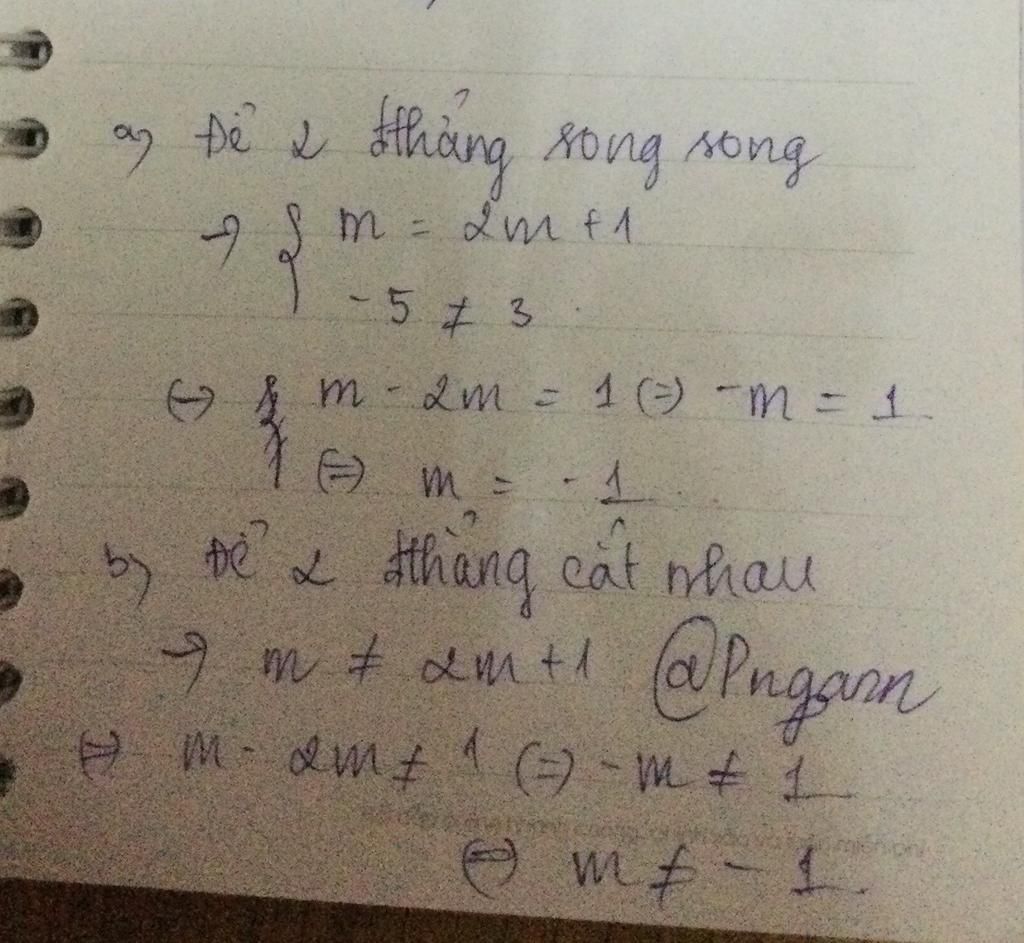 a) Để 2 đthẳng song song
→ { m = 2m + 1
-5 ≠ 3
↔ { m - 2m = 1 (=) -m = 1
(=) m = -1
b) Để 2 đthẳng cắt nhau
→ m ≠ 2m + 1 @Pngann
(=) m - 2m ≠ 1 (=) -m ≠ 1
(=) m ≠ -1